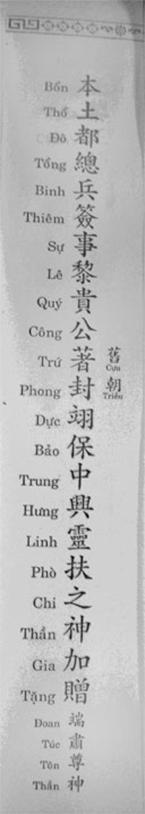 舊朝
Cựu
Triều
本土都總兵簽事黎貴公著封翊保中興靈扶之神加贈端肅尊神
Bổn
Thổ
Đô
Tổng
Binh
Thiêm
Sự
Lê
Quý
Công
Trứ
Phong
Dực
Bảo
Trung
Hưng
Linh
Phò
Chi
Thần
Gia
Tặng
Đoan
Túc
Tôn
Thần